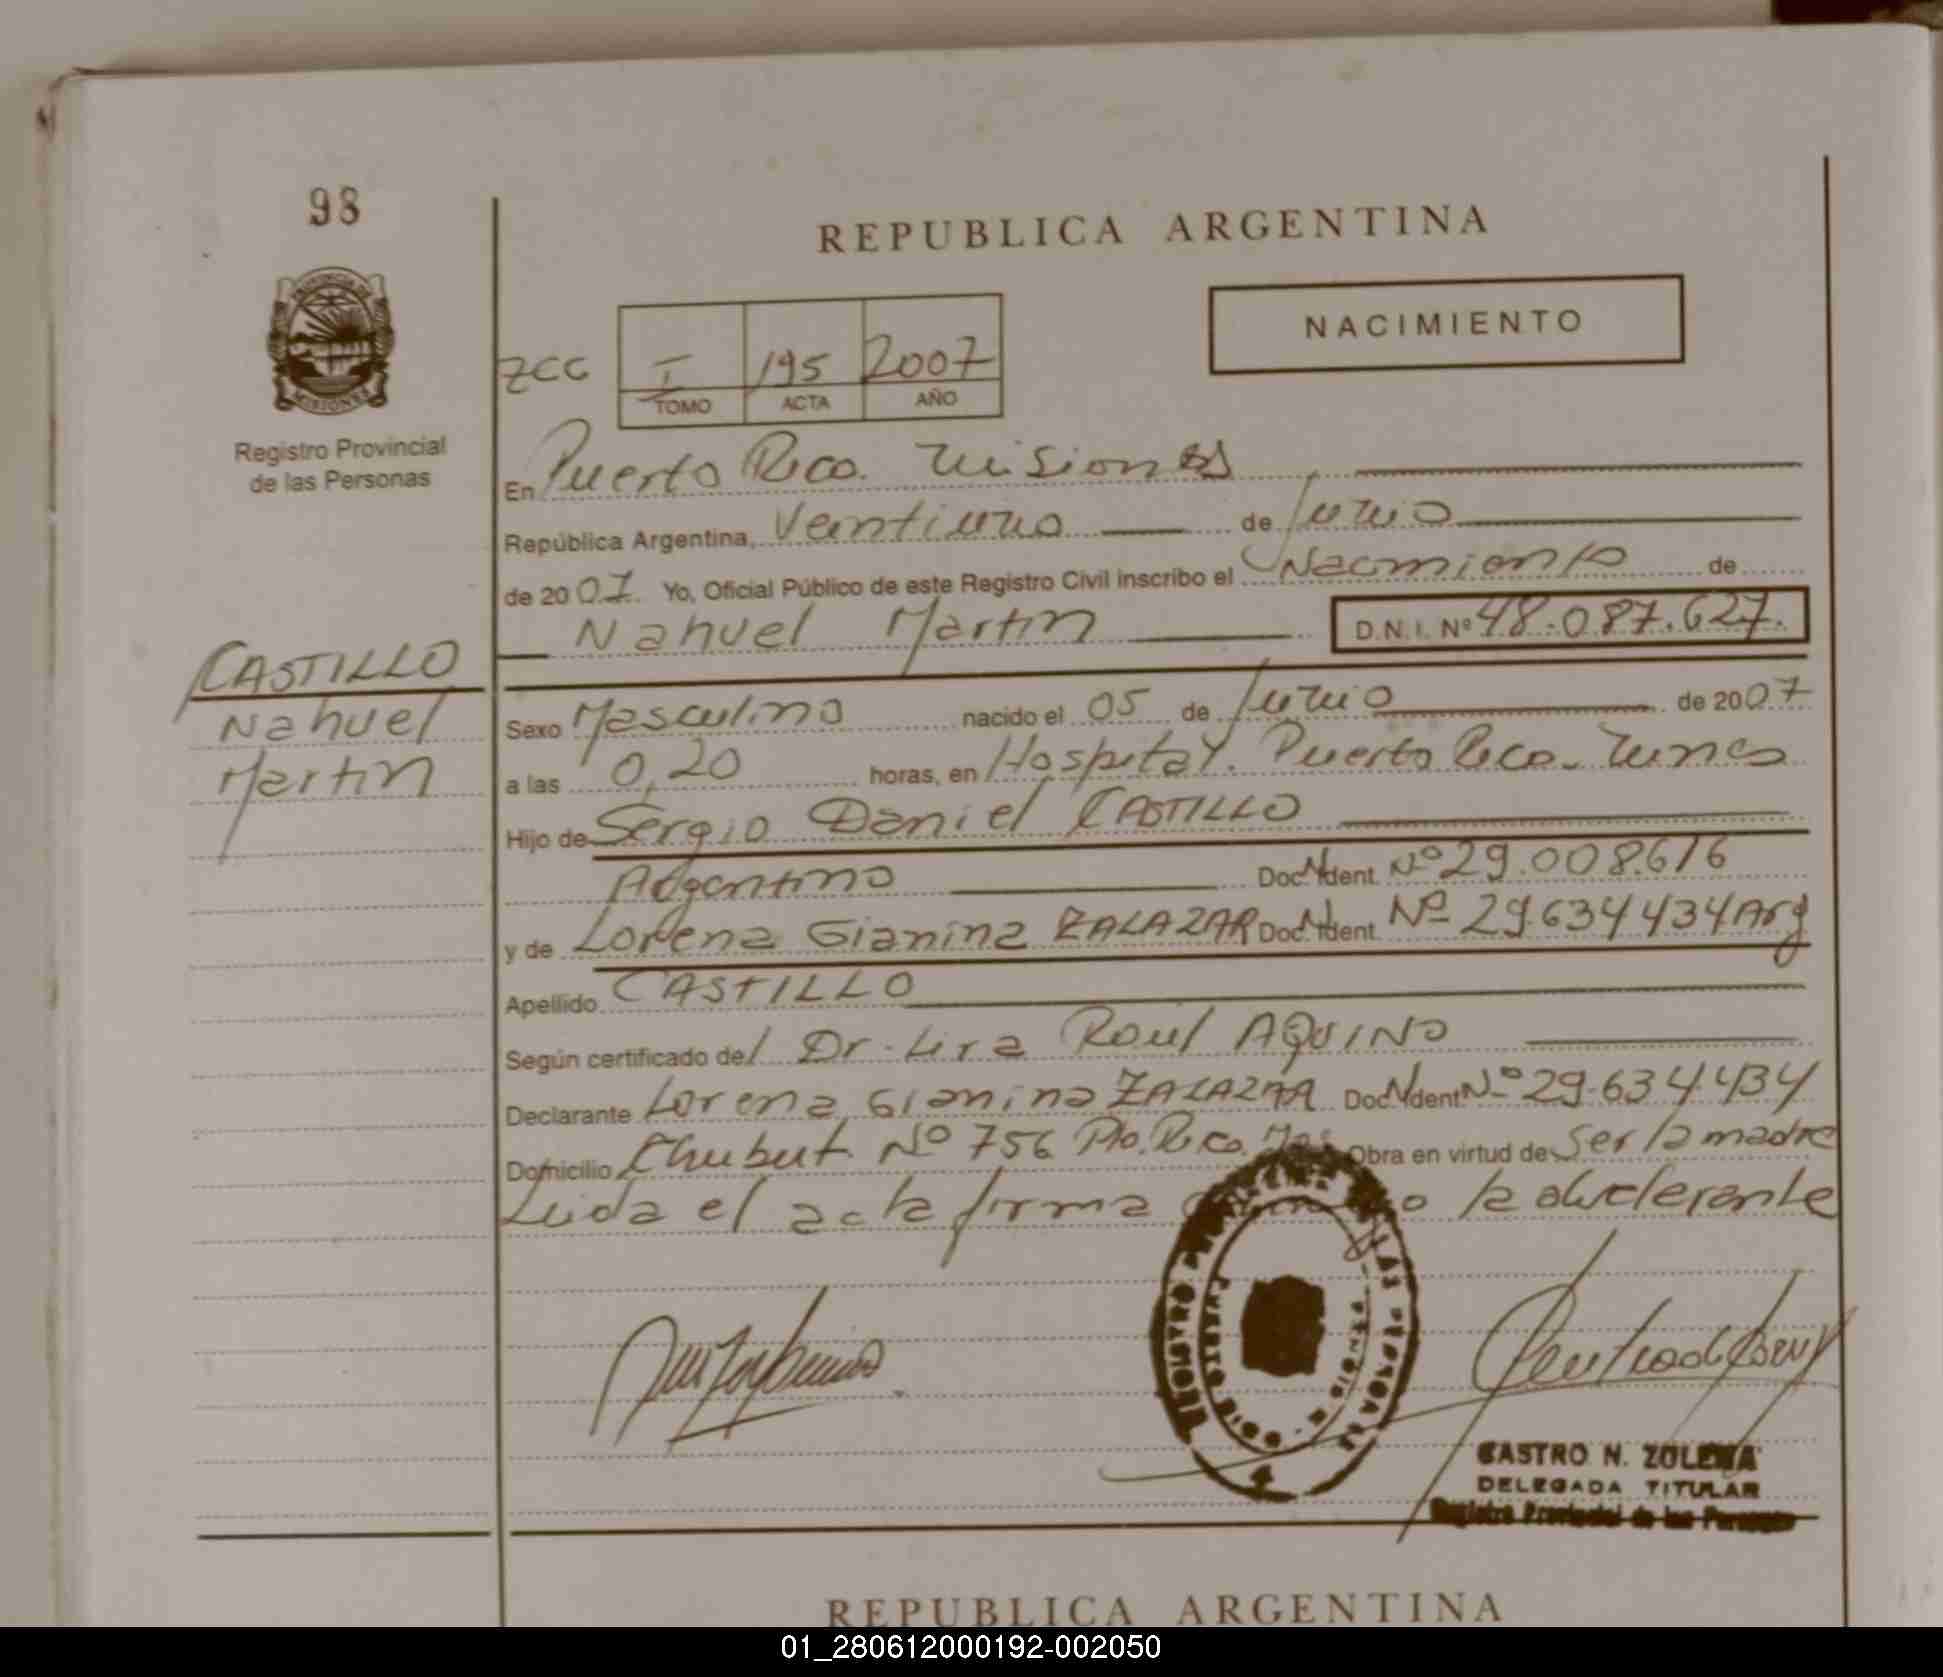 98
REPUBLICA ARGENTINA
PROVINCIA DE
MISIONES
Registro Provincial
de las Personas
NACIMIENTO
ZCC I 195 2007
TOMO ACTA AÑO
En Puerto Rico. Misiones
República Argentina, Veintiuno de Junio
de 2007. Yo, Oficial Público de este Registro Civil inscribo el Nacimiento de
Nahuel Martin D.N.I. Nº 48.087.627.
CASTILLO
Nahuel
Martin
Sexo Masculino nacido el 05 de Junio de 2007
a las 0,20 horas, en Hospital. Puerto Rico. Mnes
Hijo de Sergio Daniel CASTILLO
Argentino Doc. Ident. Nº 29.008.616
y de Lorena Gianina ZALAZAR Doc. Ident. Nº 29.634434 Arg
Apellido CASTILLO
Según certificado del Dr. Lira Raúl AQUINO
Declarante Lorena Gianina ZALAZAR Doc. Ident. Nº 29.634.434
Domicilio Chubut Nº 756 Pto. Rico. Obra en virtud de Ser la madre
Leida el acta firma la declarante
CASTRO N. ZULEMA
DELEGADA TITULAR
Registro Provincial de las Personas
REPUBLICA ARGENTINA
01_280612000192-002050